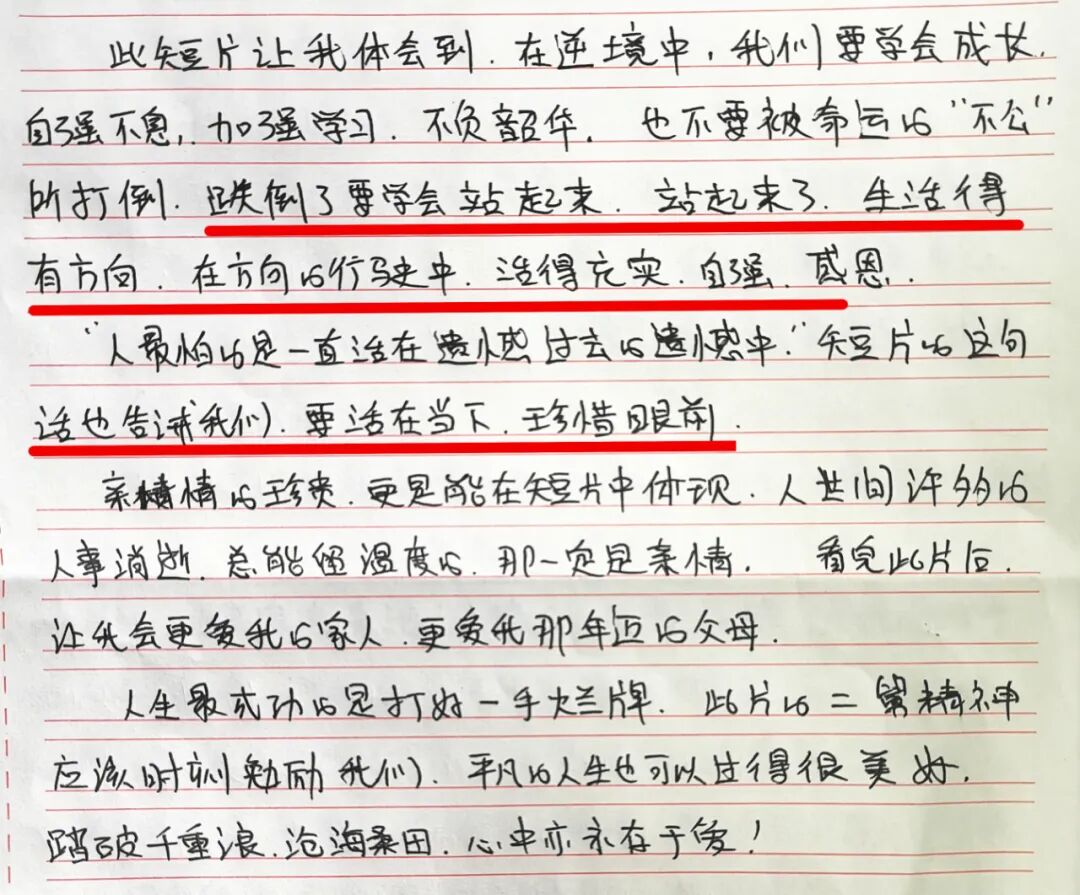 此短片让我体会到.在逆境中,我们要学会成长.
自强不息,加强学习.不负韶华. 也不要被命运的“不公”
所打倒.跌倒了要学会站起来.站起来了.生活得
有方向.在方向的行驶中.活得充实.自强.感恩.
“人最怕的是一直活在遗憾过去的遗憾中.”短片的这句
话也告诫我们.要活在当下.珍惜眼前.
亲情的珍贵.更是能在短片中体现.人世间许多的
人事消逝.总能留温度的.那一定是亲情. 看完此片后.
让我会更爱我的家人.更爱我那年迈的父母.
人生最成功的是打好一手烂牌.此片的二舅精神
应该时刻勉励我们.平凡的人生也可以过得很美好.
踏破千重浪.沧海桑田.心中亦永存于爱!